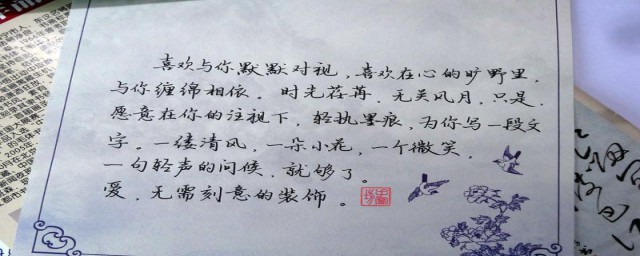 喜欢与你默默对视，喜欢在心的旷野里，
与你缠绵相依。时光荏苒，无关风月，只是，
愿意在你的注视下，轻执墨痕，为你写一段文
字。一缕清风，一朵小花，一个微笑，
一句轻声的问候，就够了。
爱，无需刻意的装饰。